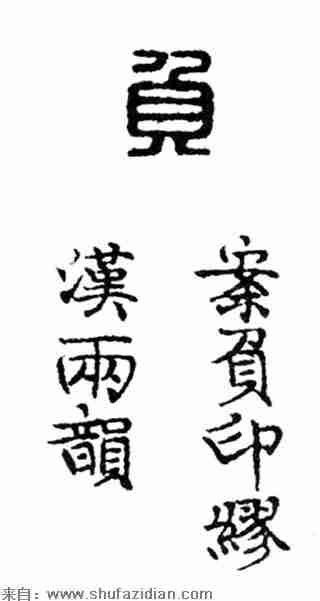 負
案負印繆
漢兩韻
来自：www.shufazidian.com